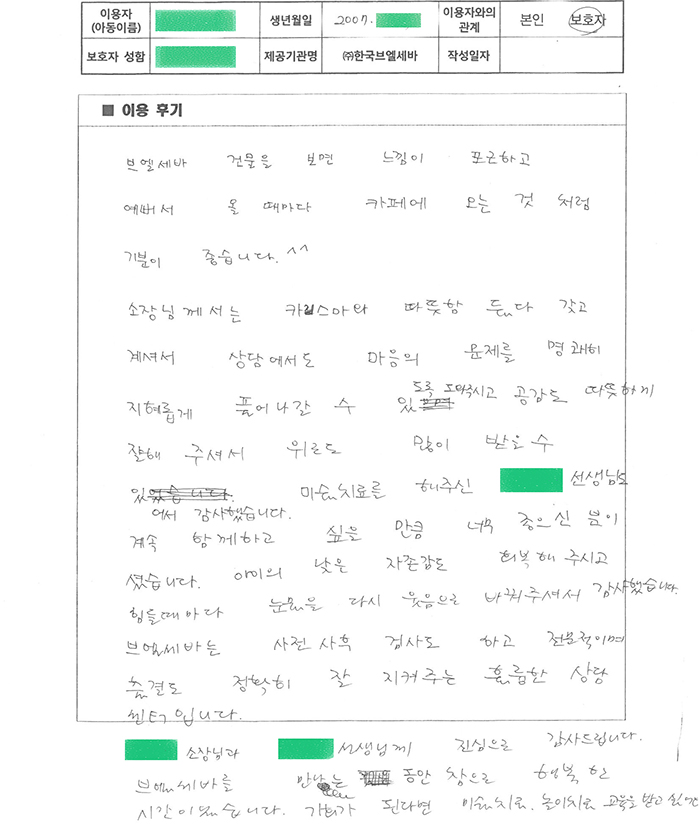 이용자 (아동이름) 생년월일 2007. 이용자와의 관계 본인 보호자
보호자 성함 제공기관명 ㈜한국브엘세바 작성일자
■ 이용 후기
브엘세바 건물을 보면 느낌이 포근하고
예뻐서 올 때마다 카페에 오는 것 처럼
기분이 좋습니다. ^^
소장님께서는 카리스마와 따뜻함 둘다 갖고
계셔서 상담에서도 마음의 문제를 명쾌히
지혜롭게 풀어나갈 수 있도록 도와주시고 공감도 따뜻하게
잘해 주셔서 위로도 많이 받을 수
있어서 감사했습니다. 미술치료를 해주신 선생님도
계속 함께하고 싶을 만큼 너무 좋으신 분이
셨습니다. 아이의 낮은 자존감도 회복해 주시고
힘들때마다 눈물을 다시 웃음으로 바꿔주셔서 감사했습니다.
브엘세바는 사전 사후 검사도 하고 전문적이며
출결도 정확히 잘 지켜주는 훌륭한 상담
센터입니다.
소장님과 선생님께 진심으로 감사드립니다.
브엘세바를 만나는 동안 참으로 행복한
시간이었습니다. 기회가 된다면 미술치료, 놀이치료 교육을 받고 싶